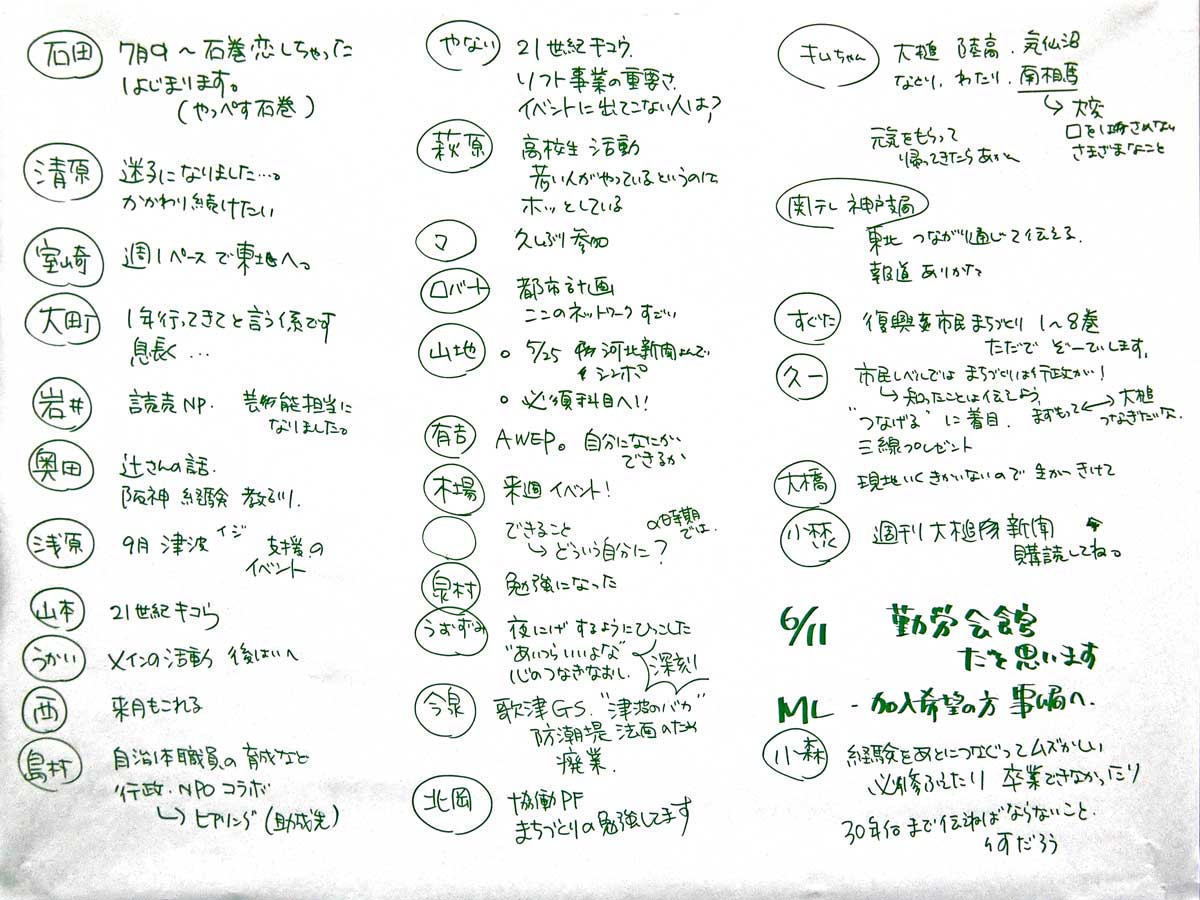 石田 7月9 〜 石巻恋しちゃった
はじまります。
(やっぺす石巻)
清原 迷子になりました…。
かかわり続けたい
室崎 週1ペースで東北へ。
大町 1年行ってきてと言う係です
息長く…
岩井 読売NP. 芸能担当に
なりました。
奥田 辻さんの話.
阪神 経験 教訓.
浅原 9月 津波イジ 支援の
イベント
山本 21世紀キコウ
うかい メインの活動 後はいへ
西 来月もこれる
島村 自治体職員の育成など
行政・NPOコラボ
↳ ヒアリング(助成先)
やない 21世紀キコウ.
ソフト事業の重要さ.
イベントに出てこない人は?
萩原 高校生 活動
若い人がやっているというのに
ホッとしている
マ 久しぶり参加
ロバート 都市計画
ここのネットワークすごい
山地 ○ 5/25 河北新聞よんで
シンポ
○ 必須科目へ!!
有吉 AWEP。自分になにが
できるか
木場 来週イベント!
できること の時期
では.
↳ どういう自分に?
泉村 勉強になった
うずみ 夜にげするようにひっこした
"あいつらいいよな"
心のつなぎなおし. 深刻!
今泉 歌津GS. "津波のバカ"
防潮堤 法面のため
廃業.
北岡 協働PF
まちづくりの勉強してます
キムちゃん 大槌 陸高. 気仙沼
なとり. わたり. 南相馬
↳ 大変
口をはさめない
さまざまなこと
元気をもらって
帰ってきたらあかん
関テレ 神戸支局
東北 つながり通じて伝える.
報道 ありかた
すぐた 復興市民まちづくり 1〜8巻
ただで ぞーていします.
久一 市民レベルでは まちづくりは行政が!
↳ 知ったことは伝えよう.
"つなげる"に着目. まずもって ↔ 大槌
つなぎたいな.
三線プレゼント
大橋 現地いくきかいないので 生かつ きけて
小林いく 週刊 大槌 新聞
購読してね。
6/11 勤労会館
だと思います
ML - 加入希望の方 事ム局へ.
小森 経験をあとにつなぐってムズかしい
必修 ふえたり 卒業できなかったり
30年後まで伝えねばならないこと.
何だろう